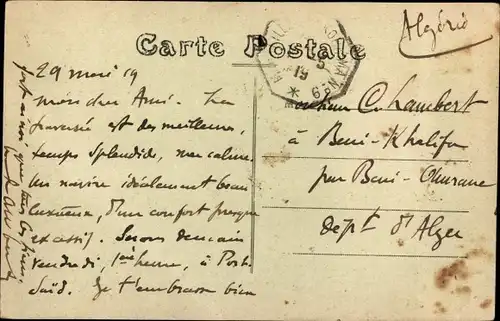 Algérie
Carte Postale
29 mai 19
Mon cher Ami. La
traversée est des meilleures,
temps splendide, mer calme.
Un navire idéalement beau
luxueux, d'un confort presque
excessif. Serons demain
vendredi, 1ère heure, à Port-
Saïd. Je t'embrasse bien
Monsieur C. Lambert
à Beni-Khalifa
par Beni-Amrane
dépt d'Alger